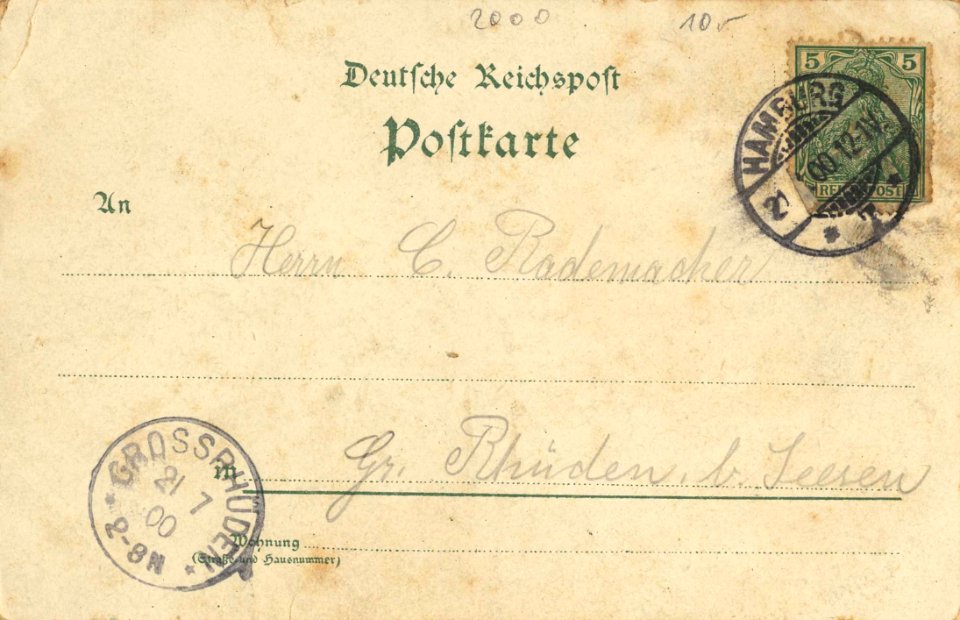 2000 10
Deutsche Reichspost
Postkarte
5 5
REICHSPOST
HAMBURG
00.12-1V.
An
Herrn C. Rademacher
in Gr. Rhüden b. Seesen
GROSSRHÜDEN
21 7
00
2-8N
Wohnung
(Straße und Hausnummer)